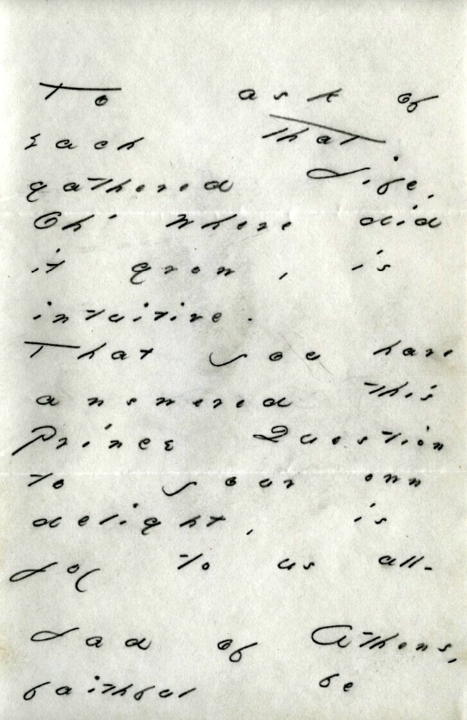 To ask of
each that
gathered Life,
Oh, where did
it grow, is
intuitive.
That you have
answered this
Prince Question
to your own
delight, is
joy to us all -
Lad of Athens,
faithful be